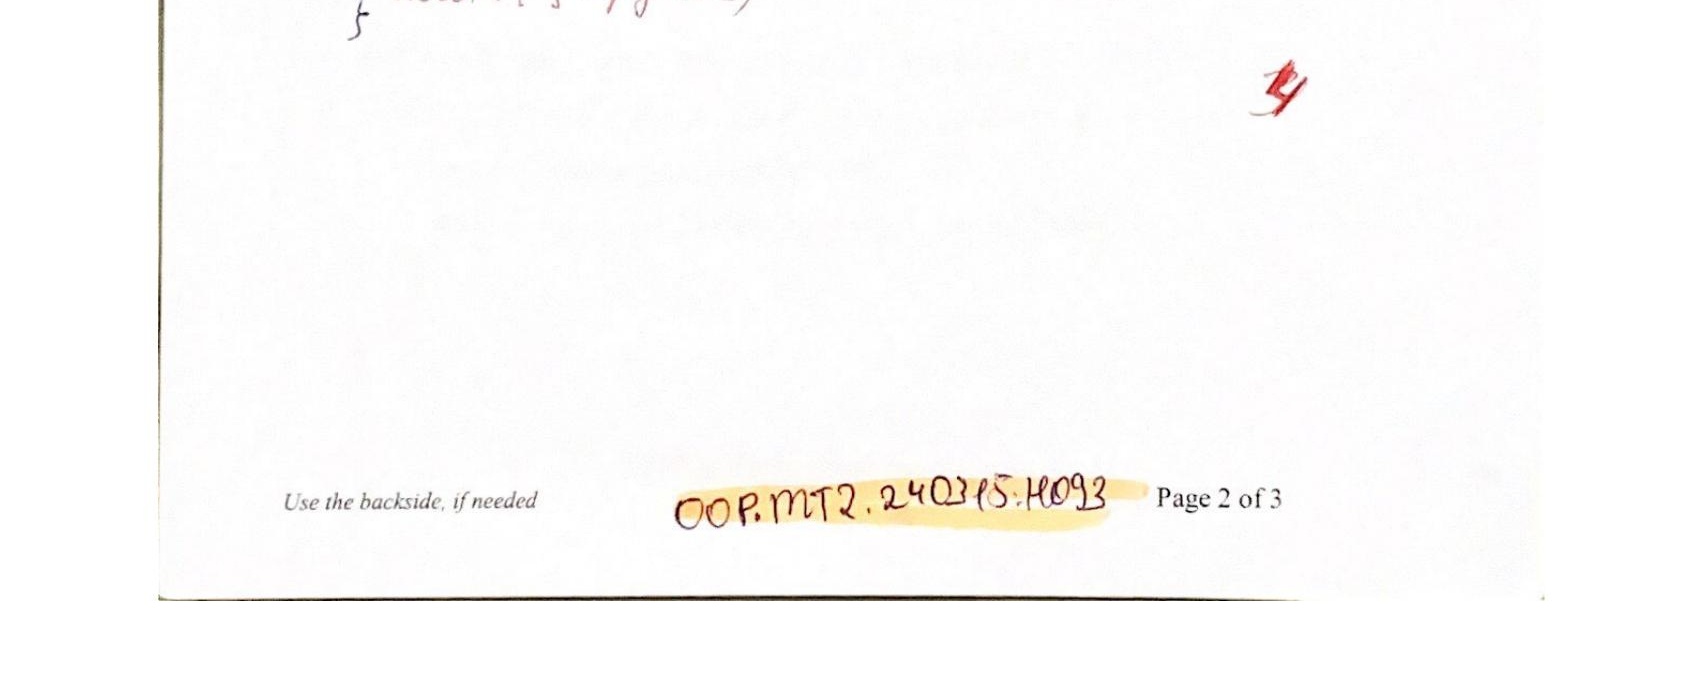 }
Use the backside, if needed
OOP.MT2.240315.H093
Page 2 of 3